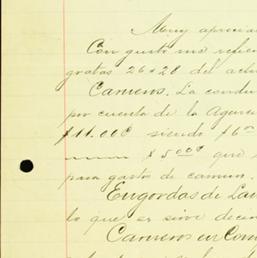 Muy aprecia
Con gusto me refie
gratas 26 & 28 del act
Carneros. La condu
por cuenta de la Agenc
$11.000 siendo $6
$5000 que
para gasto de camin.
Engordas de La
lo que se sirve decir
Carneros en Com